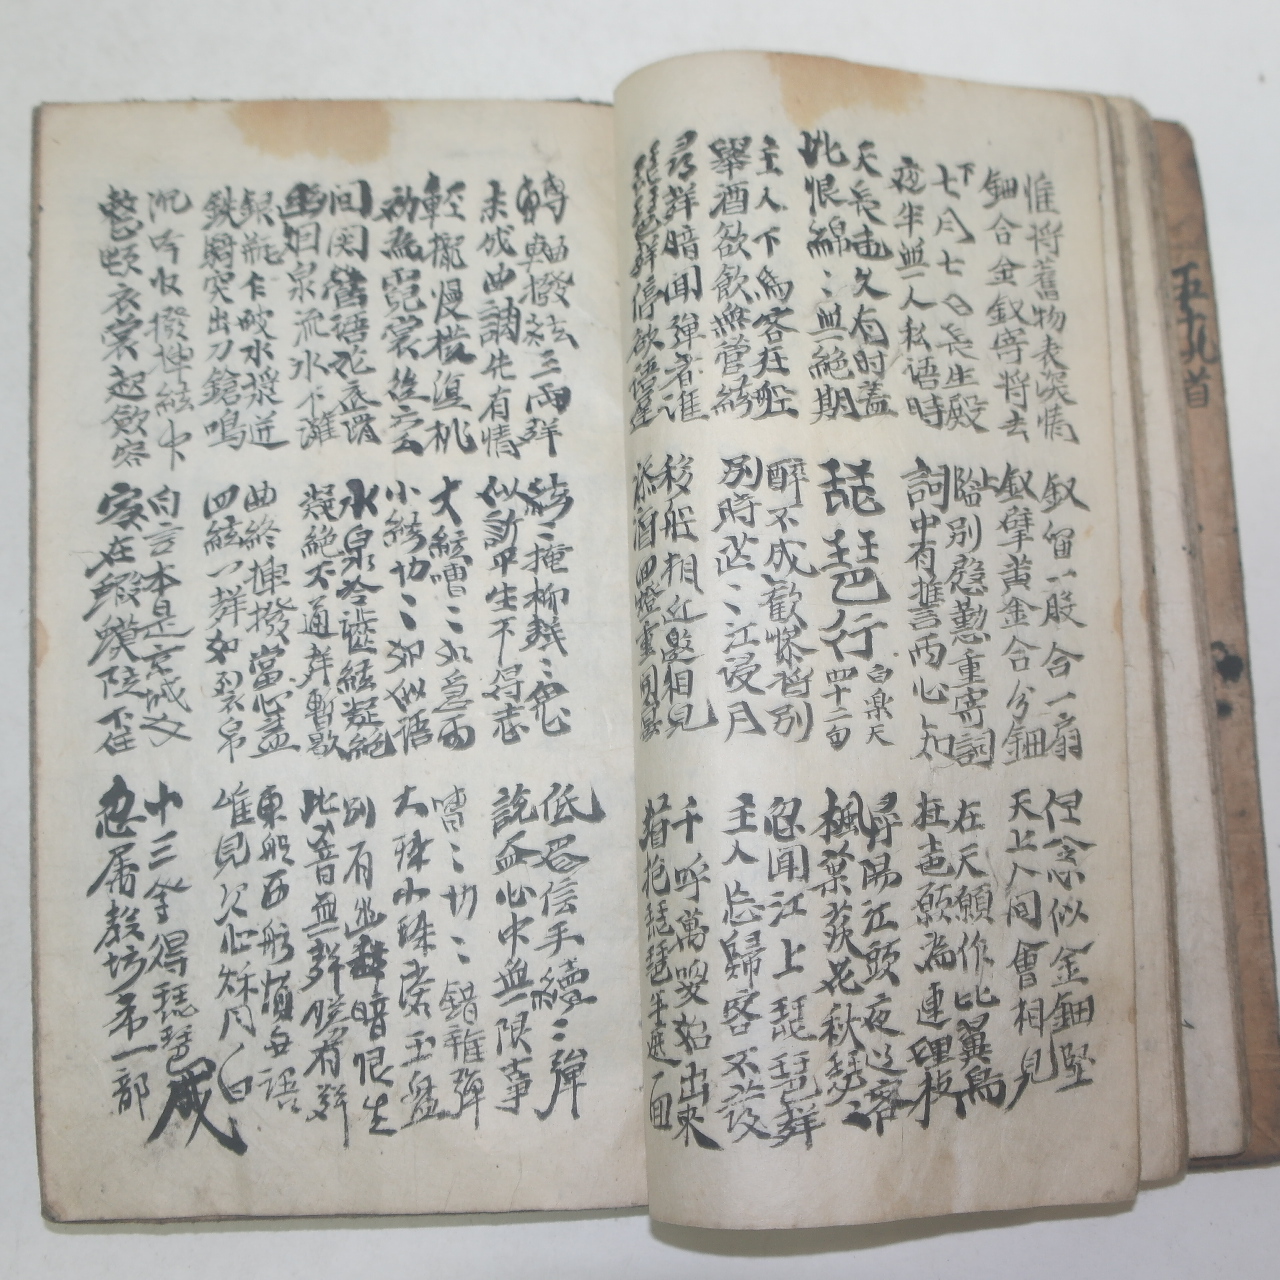 惟将舊物表深情
鈿合金釵寄将去
釵留一股合一扇
釵擘黃金合分鈿
但念似金鈿堅
天上人间會相見
下七月七日長生殿
夜半無人私语時
上臨別慇懃重寄詞
詞中有誓言两心知
在天願作比翼鳥
在地願為連理枝
天長地久有时盡
此恨綿〻無絶期
琵琶行 白樂天 四十二句
潯陽江頭夜送客
楓葉荻花秋瑟〻
主人下馬客在船
舉酒欲飲無管絃
醉不成歡慘将別
別時茫〻江浸月
忽聞江上琵琶聲
主人忘歸客不發
尋聲暗聞彈者誰
琵琶聲停欲語遲
移船相近邀相見
添酒回燈重開宴
千呼萬喚始出來
猶抱琵琶半遮面
轉軸撥絃三兩聲
未成曲調先有情
絃〻掩抑聲〻思
似訴平生不得志
低眉信手續〻彈
說盡心中無限事
輕攏慢撚復挑
初為霓裳後六幺
大絃嘈〻如急雨
小絃切〻如私语
嘈〻切〻錯雜彈
大珠小珠落玉盤
间関鶯語花底滑
幽咽泉流水下灘
水泉冷澁絃凝絶
凝絶不通聲暫歇
別有幽愁暗恨生
此音無聲勝有聲
銀瓶乍破水漿迸
鉄騎突出刀鎗鳴
曲終抽撥當心畫
四絃一聲如裂帛
東船西舫悄無語
唯見江心秋月白
沉吟收撥揷絃中
整頓衣裳起斂容
自言本是京城女
家在蝦蟆陵下住
十三學得琵琶成
名屬教坊第一部